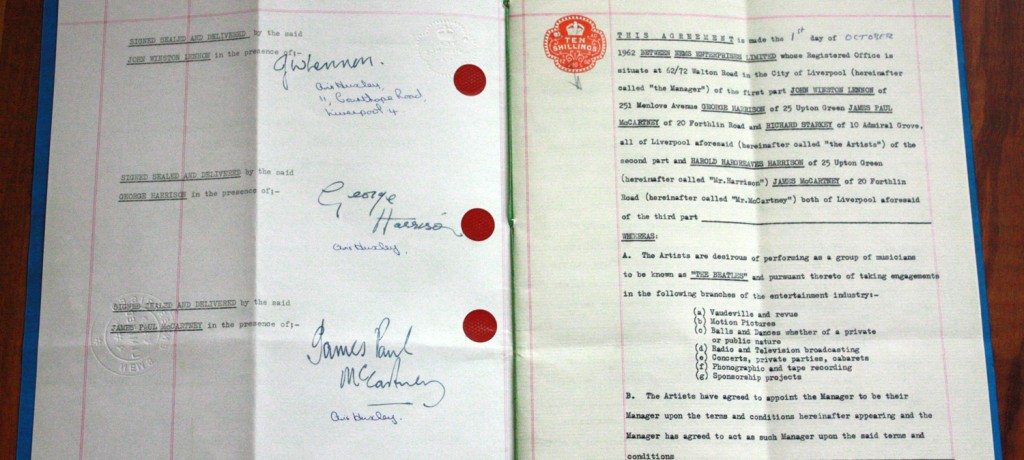 SIGNED SEALED AND DELIVERED by the said
JOHN WINSTON LENNON in the presence of:-
JWLennon.
Liverpool 4
SIGNED SEALED AND DELIVERED by the said
GEORGE HARRISON in the presence of:-
George
Harrison
SIGNED SEALED AND DELIVERED by the said
JAMES PAUL McCARTNEY in the presence of:-
James Paul
McCartney
TEN
SHILLINGS
THIS AGREEMENT is made the 1st day of OCTOBER
1962 BETWEEN NEMS ENTERPRISES LIMITED whose Registered Office is
situate at 62/72 Walton Road in the City of Liverpool (hereinafter
called "the Manager") of the first part JOHN WINSTON LENNON of
251 Menlove Avenue GEORGE HARRISON of 25 Upton Green JAMES PAUL
McCARTNEY of 20 Forthlin Road and RICHARD STARKEY of 10 Admiral Grove,
all of Liverpool aforesaid (hereinafter called "the Artists") of the
second part and HAROLD HARGREAVES HARRISON of 25 Upton Green
(hereinafter called "Mr.Harrison") JAMES McCARTNEY of 20 Forthlin
Road (hereinafter called "Mr.McCartney") both of Liverpool aforesaid
of the third part
WHEREAS:
A. The Artists are desirous of performing as a group of musicians
to be known as "THE BEATLES" and pursuant thereto of taking engagements
in the following branches of the entertainment industry:-
(a) Vaudeville and revue
(b) Motion Pictures
(c) Balls and Dances whether of a private
or public nature
(d) Radio and Television broadcasting
(e) Concerts, private parties, cabarets
(f) Phonographic and tape recording
(g) Sponsorship projects
B. The Artists have agreed to appoint the Manager to be their
Manager upon the terms and conditions hereinafter appearing and the
Manager has agreed to act as such Manager upon the said terms and
conditions